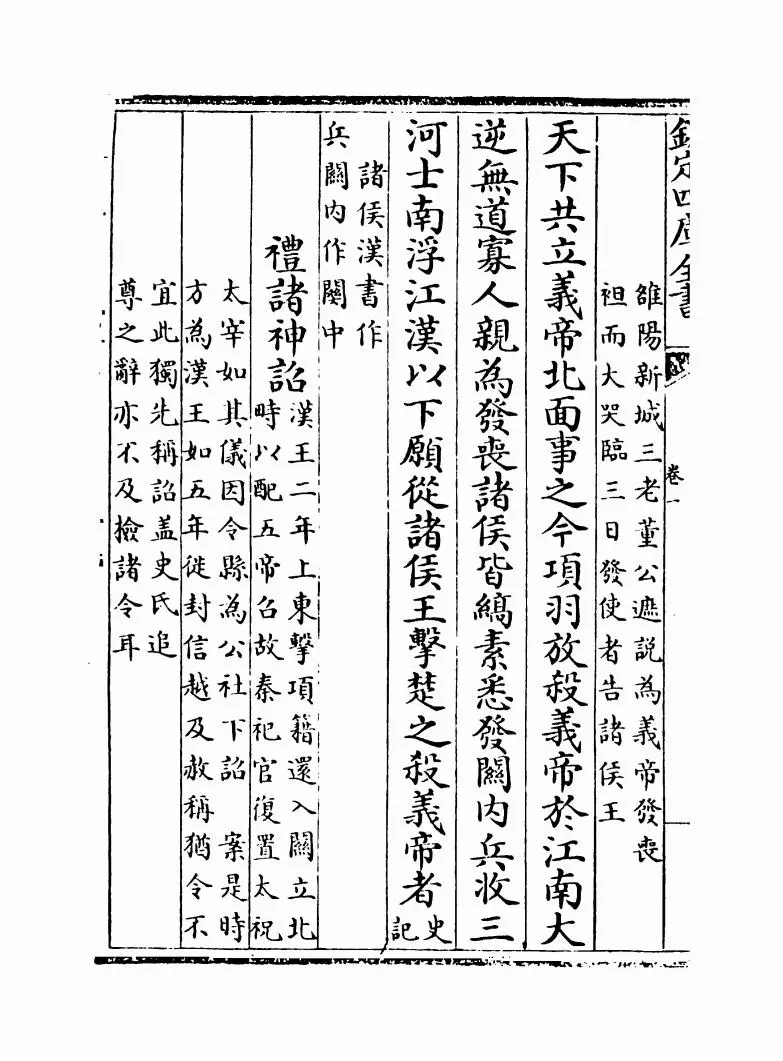 欽定四庫全書
卷一
雒陽新城三老董公遮説為義帝發喪
袒而大哭臨三日發使者告諸侯王
天下共立義帝北面事之今項羽放殺義帝於江南大
逆無道寡人親為發喪諸侯皆縞素悉發關内兵收三
河士南浮江漢以下願從諸侯王擊楚之殺義帝者
史
記
諸侯漢書作
兵關内作關中
禮諸神詔
漢王二年上東擊項籍還入關立北
時以配五帝召故秦祀官復置太祝
太宰如其儀因令縣為公社下詔 案是時
方為漢王如五年徙封信越及赦稱猶令不
宜此獨先稱詔盖史氏追
尊之辭亦不及撿諸令耳